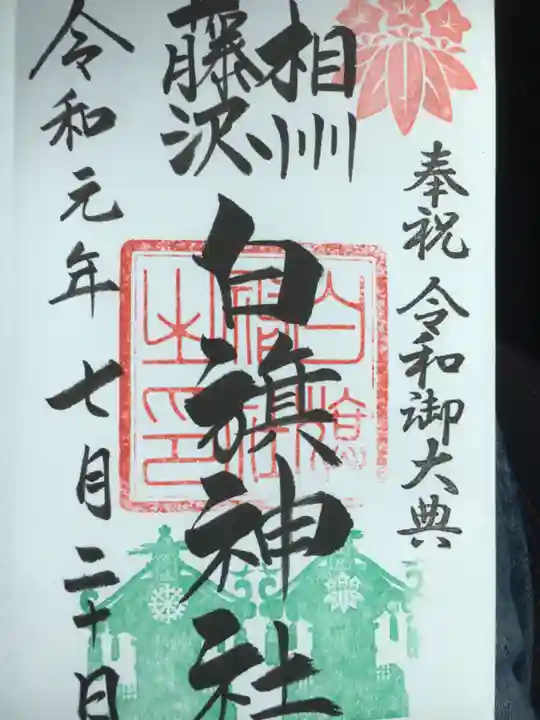 奉祝 令和御大典
相州
藤沢
白旗神社
白旗神社之印
令和元年七月二十日